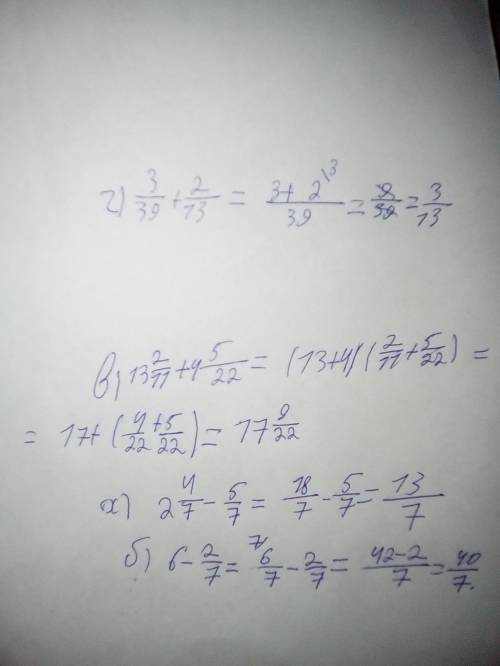 г) 3/39 + 2/13 = (3 + 2\3)/39 = 9/39 = 3/13
в) 13 2/11 + 4 5/22 = (13+4)(2/11 + 5/22) =
= 17 + (4/22 + 5/22) = 17 9/22
а) 2 4/7 - 5/7 = 18/7 - 5/7 = 13/7
б) 6 - 2/7 = 7/ 6/7 - 2/7 = (42-2)/7 = 40/7.